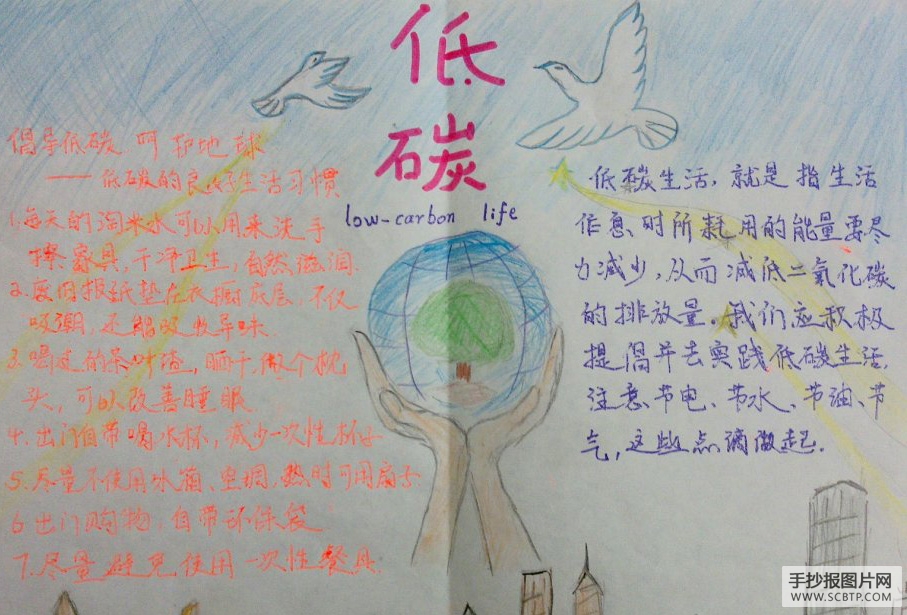 低
碳
low-carbon life
倡导低碳 呵护地球
——低碳的良好生活习惯
1.每天的淘米水可以用来洗手
擦家具,干净卫生,自然滋润.
2.废旧报纸垫在衣橱底层,不仅
吸潮,还能吸收异味.
3.喝过的茶叶渣,晒干,做个枕
头,可以改善睡眠
4.出门自带喝水杯,减少一次性杯子
5.尽量不使用冰箱、空调,热时可用扇子
6.出门购物,自带环保袋
7.尽量避免使用一次性餐具.
低碳生活,就是指生活
作息时所耗用的能量要尽
力减少,从而减低二氧化碳
的排放量.我们应积极
提倡并去实践低碳生活,
注意节电、节水、节油、节
气,这些点滴做起.
手抄报图片网
WWW.SCBTP.COM